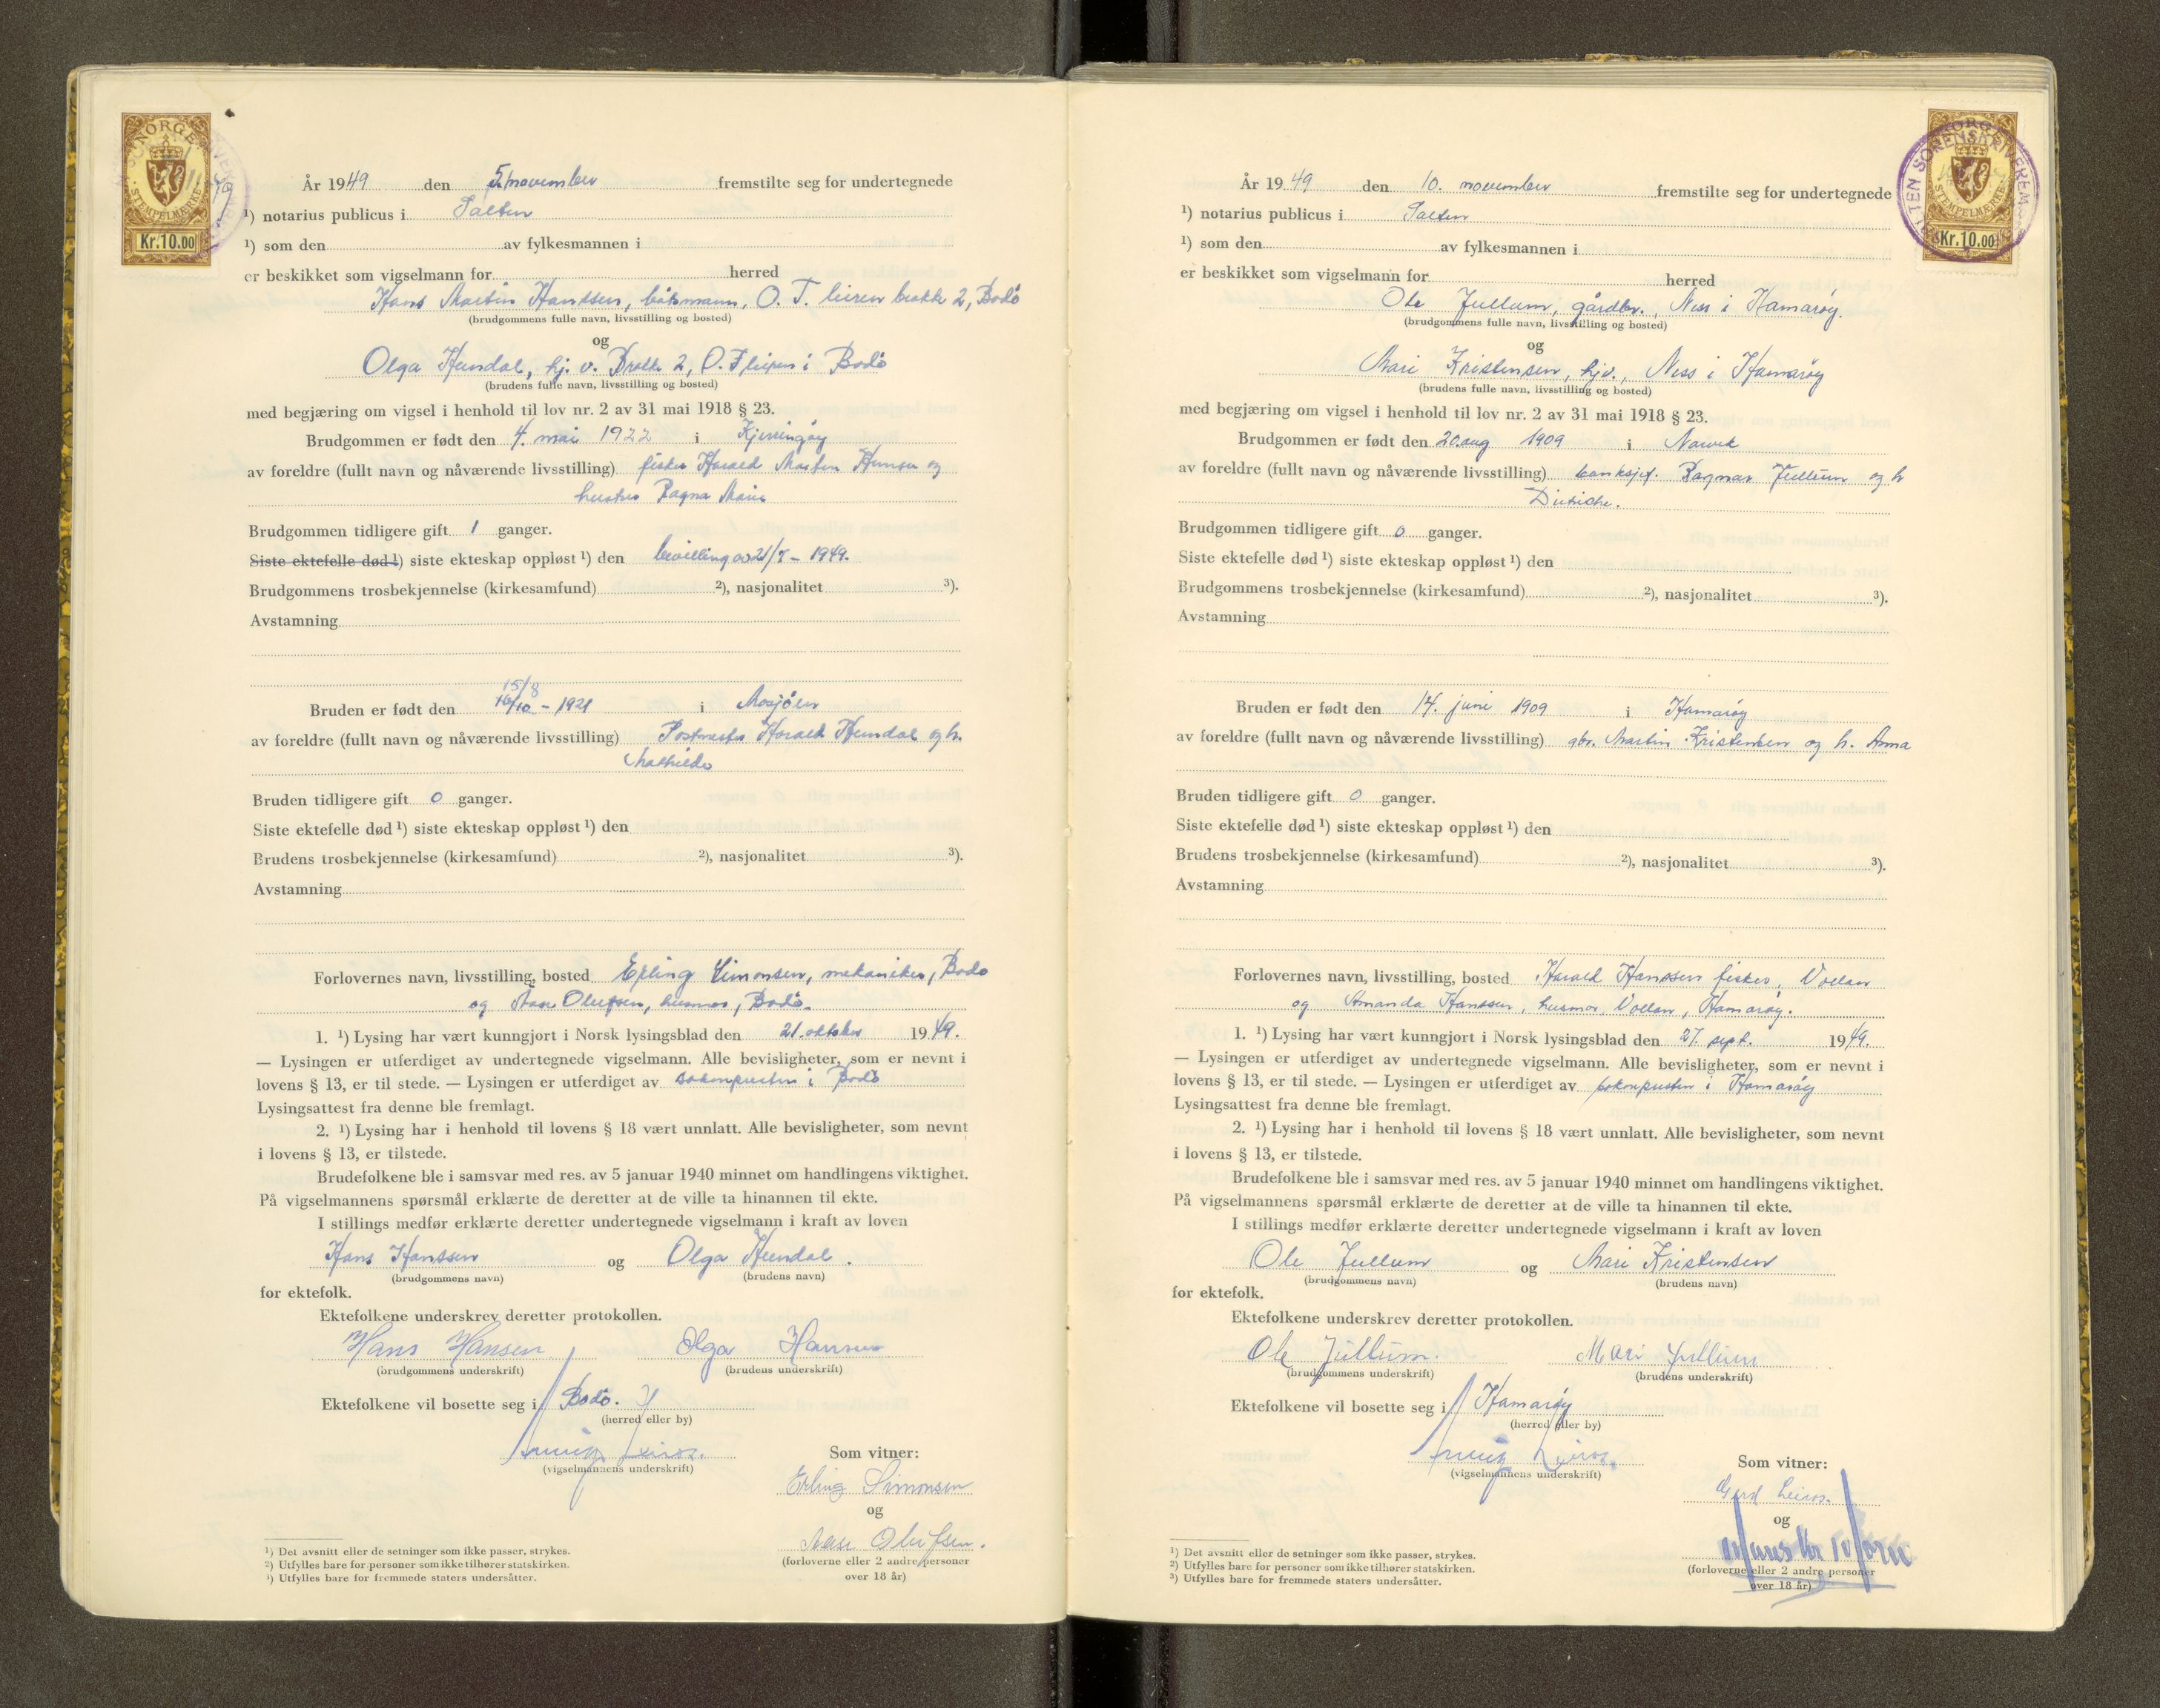 NORGE
STEMPELMERKE
Kr.10.00
År 1949 den 5. november fremstilte seg for undertegnede
¹) notarius publicus i Salten
¹) som den av fylkesmannen i
er beskikket som vigselmann for herred
Hans Martin Hanssen, båtsmann, O. T. leiren brakke 2, Bodø
(brudgommens fulle navn, livsstilling og bosted)
og
Olga Hundal, hj. v. Brakke 2, O. T leiren i Bodø
(brudens fulle navn, livsstilling og bosted)
med begjæring om vigsel i henhold til lov nr. 2 av 31 mai 1918 § 23.
Brudgommen er født den 4. mai 1922 i Kjerringøy
av foreldre (fullt navn og nåværende livsstilling) fisker Harald Martin Hansen og
hustru Ragna Marie
Brudgommen tidligere gift 1 ganger.
Siste ektefelle død ¹) siste ekteskap oppløst ¹) den bevilling av 21/7 - 1949.
Brudgommens trosbekjennelse (kirkesamfund) ²), nasjonalitet ³).
Avstamning
15/8
Bruden er født den 16/10 - 1921 i Mosjøen
av foreldre (fullt navn og nåværende livsstilling) Postmester Harald Hundal og h.
Mathilde
Bruden tidligere gift 0 ganger.
Siste ektefelle død ¹) siste ekteskap oppløst ¹) den
Brudens trosbekjennelse (kirkesamfund) ²), nasjonalitet ³).
Avstamning
Forlovernes navn, livsstilling, bosted Erling Simonsen, mekaniker, Bodø
og Aase Olufsen, husmor, Bodø.
1. ¹) Lysing har vært kunngjort i Norsk lysingsblad den 21. oktober 1949.
— Lysingen er utferdiget av undertegnede vigselmann. Alle bevisligheter, som er nevnt i
lovens § 13, er til stede. — Lysingen er utferdiget av soknepresten i Bodø
Lysingsattest fra denne ble fremlagt.
2. ¹) Lysing har i henhold til lovens § 18 vært unnlatt. Alle bevisligheter, som nevnt
i lovens § 13, er tilstede.
Brudefolkene ble i samsvar med res. av 5 januar 1940 minnet om handlingens viktighet.
På vigselmannens spørsmål erklærte de deretter at de ville ta hinannen til ekte.
I stillings medfør erklærte deretter undertegnede vigselmann i kraft av loven
Hans Hanssen og Olga Hundal.
(brudgommens navn) (brudens navn)
for ektefolk.
Ektefolkene underskrev deretter protokollen.
Hans Hansen Olga Hansen
(brudgommens underskrift) (brudens underskrift)
Ektefolkene vil bosette seg i Bodø.
(herred eller by)
(vigselmannens underskrift)
Som vitner:
Erling Simonsen
og
Aase Olufsen.
(forloverne eller 2 andre personer
over 18 år)
¹) Det avsnitt eller de setninger som ikke passer, strykes.
²) Utfylles bare for personer som ikke tilhører statskirken.
³) Utfylles bare for fremmede staters undersåtter.
NORGE
STEMPELMERKE
Kr.10.00
SALTEN SORENSKRIVEREMBETE
År 1949 den 10. november fremstilte seg for undertegnede
¹) notarius publicus i Salten
¹) som den av fylkesmannen i
er beskikket som vigselmann for herred
Ole Jullum, gårdbr., Ness i Hamarøy.
(brudgommens fulle navn, livsstilling og bosted)
og
Mari Kristensen, hjv., Ness i Hamarøy
(brudens fulle navn, livsstilling og bosted)
med begjæring om vigsel i henhold til lov nr. 2 av 31 mai 1918 § 23.
Brudgommen er født den 20. aug 1909 i Narvik
av foreldre (fullt navn og nåværende livsstilling) banksjef. Ragnar Jullum og h
Brudgommen tidligere gift 0 ganger.
Siste ektefelle død ¹) siste ekteskap oppløst ¹) den
Brudgommens trosbekjennelse (kirkesamfund) ²), nasjonalitet ³).
Avstamning
Bruden er født den 14. juni 1909 i Hamarøy
av foreldre (fullt navn og nåværende livsstilling) gbr. Martin Kristensen og h. Anna
Bruden tidligere gift 0 ganger.
Siste ektefelle død ¹) siste ekteskap oppløst ¹) den
Brudens trosbekjennelse (kirkesamfund) ²), nasjonalitet ³).
Avstamning
Forlovernes navn, livsstilling, bosted Harald Hanssen fisker, Vollan
og Amanda Hanssen, husmor, Vollan, Hamarøy.
1. ¹) Lysing har vært kunngjort i Norsk lysingsblad den 27. sept. 1949.
— Lysingen er utferdiget av undertegnede vigselmann. Alle bevisligheter, som er nevnt i
lovens § 13, er til stede. — Lysingen er utferdiget av soknepresten i Hamarøy
Lysingsattest fra denne ble fremlagt.
2. ¹) Lysing har i henhold til lovens § 18 vært unnlatt. Alle bevisligheter, som nevnt
i lovens § 13, er tilstede.
Brudefolkene ble i samsvar med res. av 5 januar 1940 minnet om handlingens viktighet.
På vigselmannens spørsmål erklærte de deretter at de ville ta hinannen til ekte.
I stillings medfør erklærte deretter undertegnede vigselmann i kraft av loven
Ole Jullum og Mari Kristensen
(brudgommens navn) (brudens navn)
for ektefolk.
Ektefolkene underskrev deretter protokollen.
Ole Jullum. Mari Jullum
(brudgommens underskrift) (brudens underskrift)
Ektefolkene vil bosette seg i Hamarøy
(herred eller by)
(vigselmannens underskrift)
Som vitner:
Gerd Leiros.
og
(forloverne eller 2 andre personer
over 18 år)
¹) Det avsnitt eller de setninger som ikke passer, strykes.
²) Utfylles bare for personer som ikke tilhører statskirken.
³) Utfylles bare for fremmede staters undersåtter.